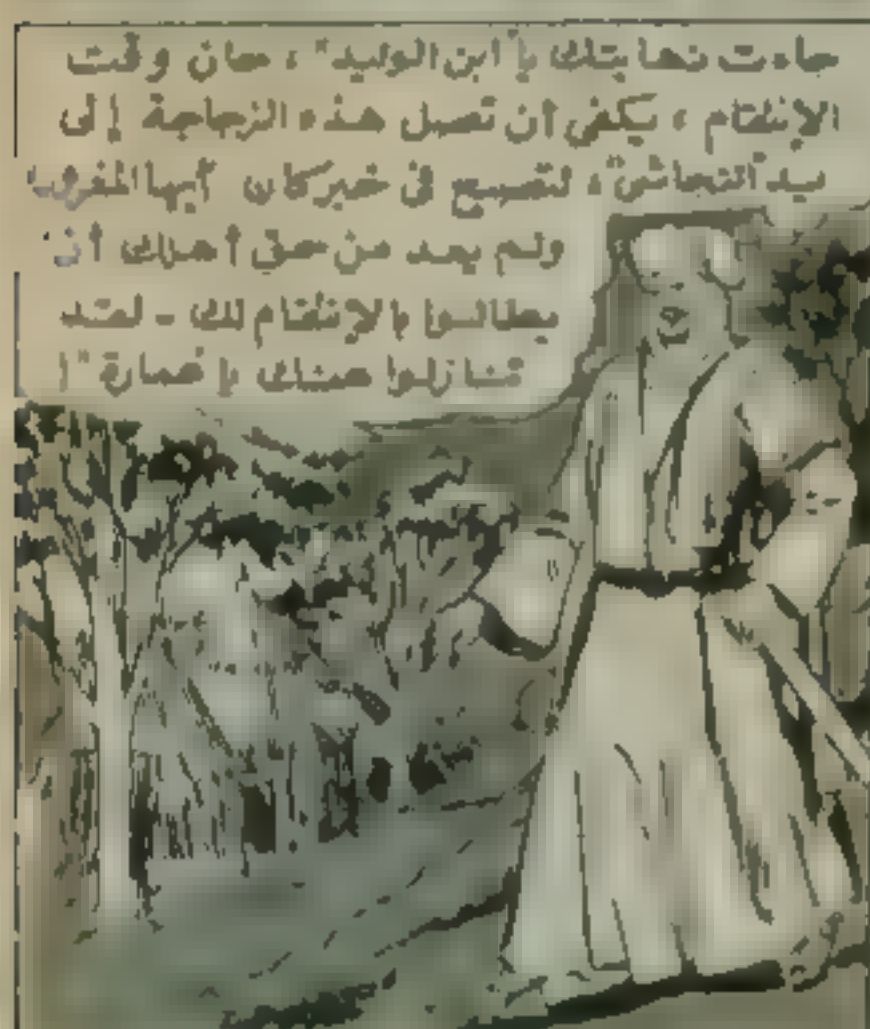 جاءت نهايتك يا "ابن الوليد" ، حان وقت
الإنتقام ، يكفى أن تصل هذه الزجاجة إلى
يد "النجاشى" ، لتصبح فى خبر كان أيها المغرور
ولم يعد من حق أهلك أن
يطالبوا بالإنتقام لك - لقد
تنازلوا عنك يا "عمارة" !